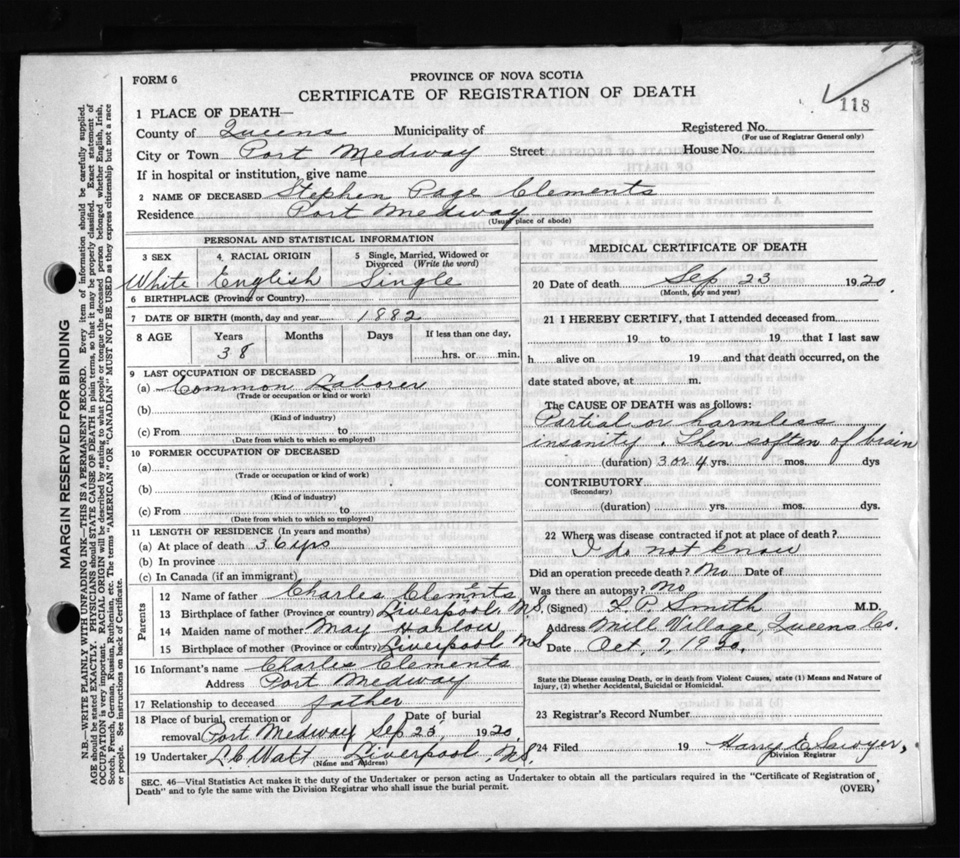 FORM 6
PROVINCE OF NOVA SCOTIA
CERTIFICATE OF REGISTRATION OF DEATH
118
1 PLACE OF DEATH—
County of Queens Municipality of Registered No.
(For use of Registrar General only)
City or Town Port Medway Street House No.
If in hospital or institution, give name
2 NAME OF DECEASED Stephen Page Clements
Residence Port Medway
(Usual place of abode)
PERSONAL AND STATISTICAL INFORMATION
3 SEX 4 RACIAL ORIGIN 5 Single, Married, Widowed or Divorced (Write the word)
White English Single
6 BIRTHPLACE (Province or Country)
7 DATE OF BIRTH (month, day and year) 1882
8 AGE Years Months Days If less than one day,
38 hrs. or min.
9 LAST OCCUPATION OF DECEASED
(a) Common Laborer
(Trade or occupation or kind or work)
(b)
(Kind of industry)
(c) From to
(Date from which to which so employed)
10 FORMER OCCUPATION OF DECEASED
(a)
(Trade or occupation or kind of work)
(b)
(Kind of industry)
(c) From to
(Date from which to which so employed)
11 LENGTH OF RESIDENCE (In years and months)
(a) At place of death 36 yrs
(b) In province
(c) In Canada (if an immigrant)
Parents
12 Name of father Charles Clements
13 Birthplace of father (Province or country) Liverpool N.S.
14 Maiden name of mother May Harlow
15 Birthplace of mother (Province or country) Liverpool NS
16 Informant's name Charles Clements
Address Port Medway
17 Relationship to deceased father
18 Place of burial, cremation or removal Port Medway Date of burial Sep 23, 1920,
19 Undertaker L.C. Watt Liverpool, N.S.
(Name and Address)
MEDICAL CERTIFICATE OF DEATH
20 Date of death Sep 23 1920.
(Month, day and year)
21 I HEREBY CERTIFY, that I attended deceased from
19 to 19 that I last saw
h alive on 19 and that death occurred, on the
date stated above, at m.
The CAUSE OF DEATH was as follows:
Partial or harmless
insanity. Then soften of brain
(duration) 3 or 4 yrs. mos. dys
CONTRIBUTORY
(Secondary)
(duration) yrs. mos. dys.
22 Where was disease contracted if not at place of death?
I do not know
Did an operation precede death? No Date of
Was there an autopsy? No
(Signed) L. P. Smith M.D.
Address Mill Village, Queens Co.
Date Oct, 7, 1920.
State the Disease causing Death, or in death from Violent Causes, state (1) Means and Nature of
Injury, (2) whether Accidental, Suicidal or Homicidal.
23 Registrar's Record Number
24 Filed 19 Harry E. Sawyer,
Division Registrar
SEC. 46—Vital Statistics Act makes it the duty of the Undertaker or person acting as Undertaker to obtain all the particulars required in the "Certificate of Registration of
Death" and to fyle the same with the Division Registrar who shall issue the burial permit.
(OVER)
MARGIN RESERVED FOR BINDING
N.B.—WRITE PLAINLY WITH UNFADING INK—THIS IS A PERMANENT RECORD. Every item of information should be carefully supplied.
AGE should be stated EXACTLY. PHYSICIANS should STATE CAUSE OF DEATH in plain terms, so that it may be properly classified. Exact statement of
OCCUPATION is very important. RACIAL ORIGIN will be described by stating to what people or tongue the deceased person belonged whether English, Irish,
Scotch, French, German, Russian, Ruthenian, etc. The terms "AMERICAN" OR "CANADIAN" MUST NOT BE USED as they express citizenship but not a race
or people. See instructions on back of Certificate.